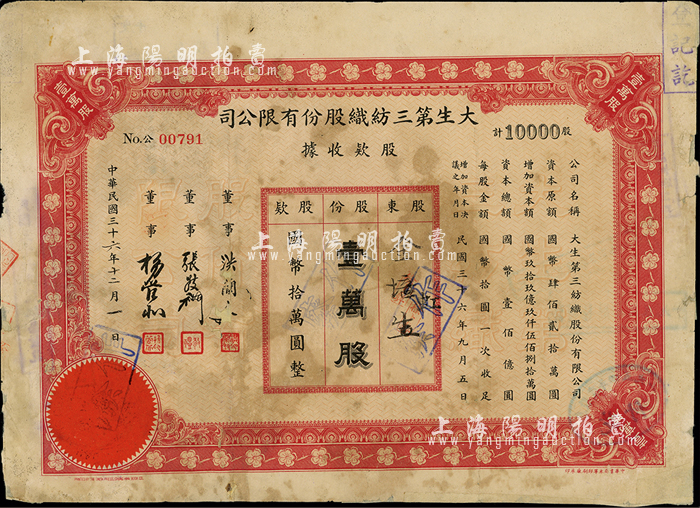 上海陽明拍賣
www.yangmingauction.com
壹萬股
壹萬股
大生第三紡織股份有限公司
股款收據
No.公 00791
計10000股
公司名稱 大生第三紡織股份有限公司
資本原額 國幣肆佰貳拾萬圓
增加資本額 國幣玖拾玖億玖仟伍佰捌拾萬圓
資本總額 國幣壹佰億圓
每股金額 國幣拾圓一次收足
增加資本決議之年月日 民國三十六年九月五日
股東 股份 股款
壹萬股
國幣拾萬圓整
董事
董事 張敬禮
董事 楊管北
中華民國三十六年十二月一日
上海陽明拍賣
www.yangmingauction.com
上海陽明拍賣
www.yangmingauction.com